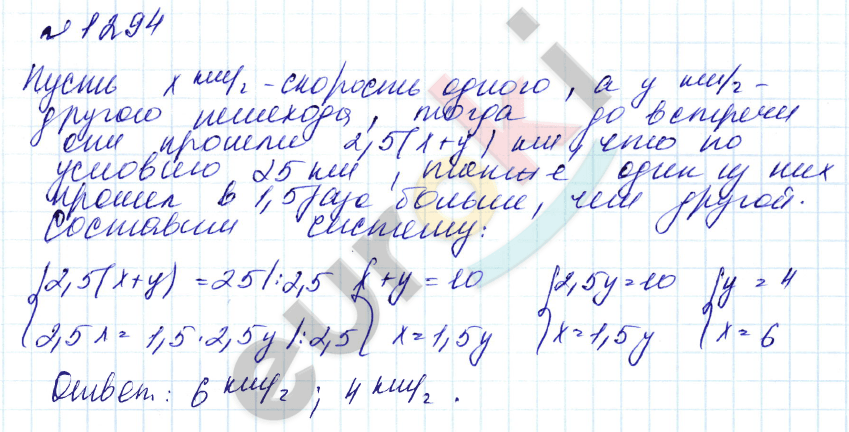 № 1294
Пусть x км/ч - скорость одного, а y км/ч -
другого пешехода, тогда до встречи
они прошли 2,5(x+y) км, что по
условию 25 км, также один из них
прошел в 1,5 раза больше, чем другой.
Составим систему:
{2,5(x+y) = 25 |:2,5 {x+y = 10 {2,5y=10 {y = 4
{2,5x = 1,5·2,5y |:2,5 {x=1,5y {x=1,5y {x=6
Ответ: 6 км/ч ; 4 км/ч .
euroki